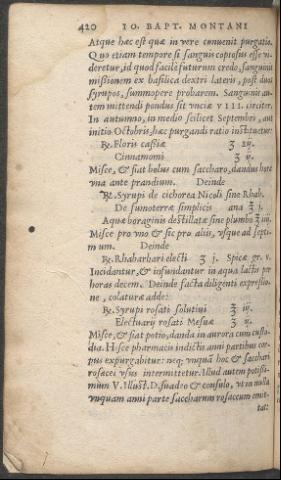 420 IO. BAPT. MONTANI
Atque hæc est quæ in vere conuenit purgatio.
Quo etiam tempore si sanguis copiosus esse vi-
deretur, id quod facilè futurum credo, sanguinis
missionem ex basilica dextri lateris, post duos
syrupos, summopere probarem. Sanguinis au-
tem mittendi pondus sit vnciæ VIII. circiter.
In autumno, in medio scilicet Septembri, aut
initio Octobris, hæc purgandi ratio instituatur:
℞. Floris cassiæ ʒ
Cinnamomi ʒ ij.
Misce, & fiat bolus cum saccharo, dandus hora
vna ante prandium. Deinde
℞. Syrupi de cichorea Nicoli sine Rhab.
De fumoterræ simplicis ana ℥ j.
Aquæ boraginis destillatæ sine plumbo ℥ iij.
Misce pro vno & sic pro aliis, vsque ad septi-
mum. Deinde
℞. Rhabarbari electi ʒ j. Spicæ gr. v.
Incidantur, & infundantur in aqua lactis per
horas decem. Deinde facta diligenti expressio-
ne, colaturæ adde:
℞. Syrupi rosati solutiui ℥ iij.
Electuarij rosati Mesuæ ʒ ij.
Misce, & fiat potio, danda in aurora cum custo-
dia. Hisce pharmacis indictis anni partibus cor-
pus expurgabitur: neq; vnquã hoc & sacchari
rosacei vsus intermittetur. Illud autem potissi-
mùm V. Illust. D. suadeo & consulo, vt in nulla
vnquam anni parte saccharum rosaceum omit-
tat: